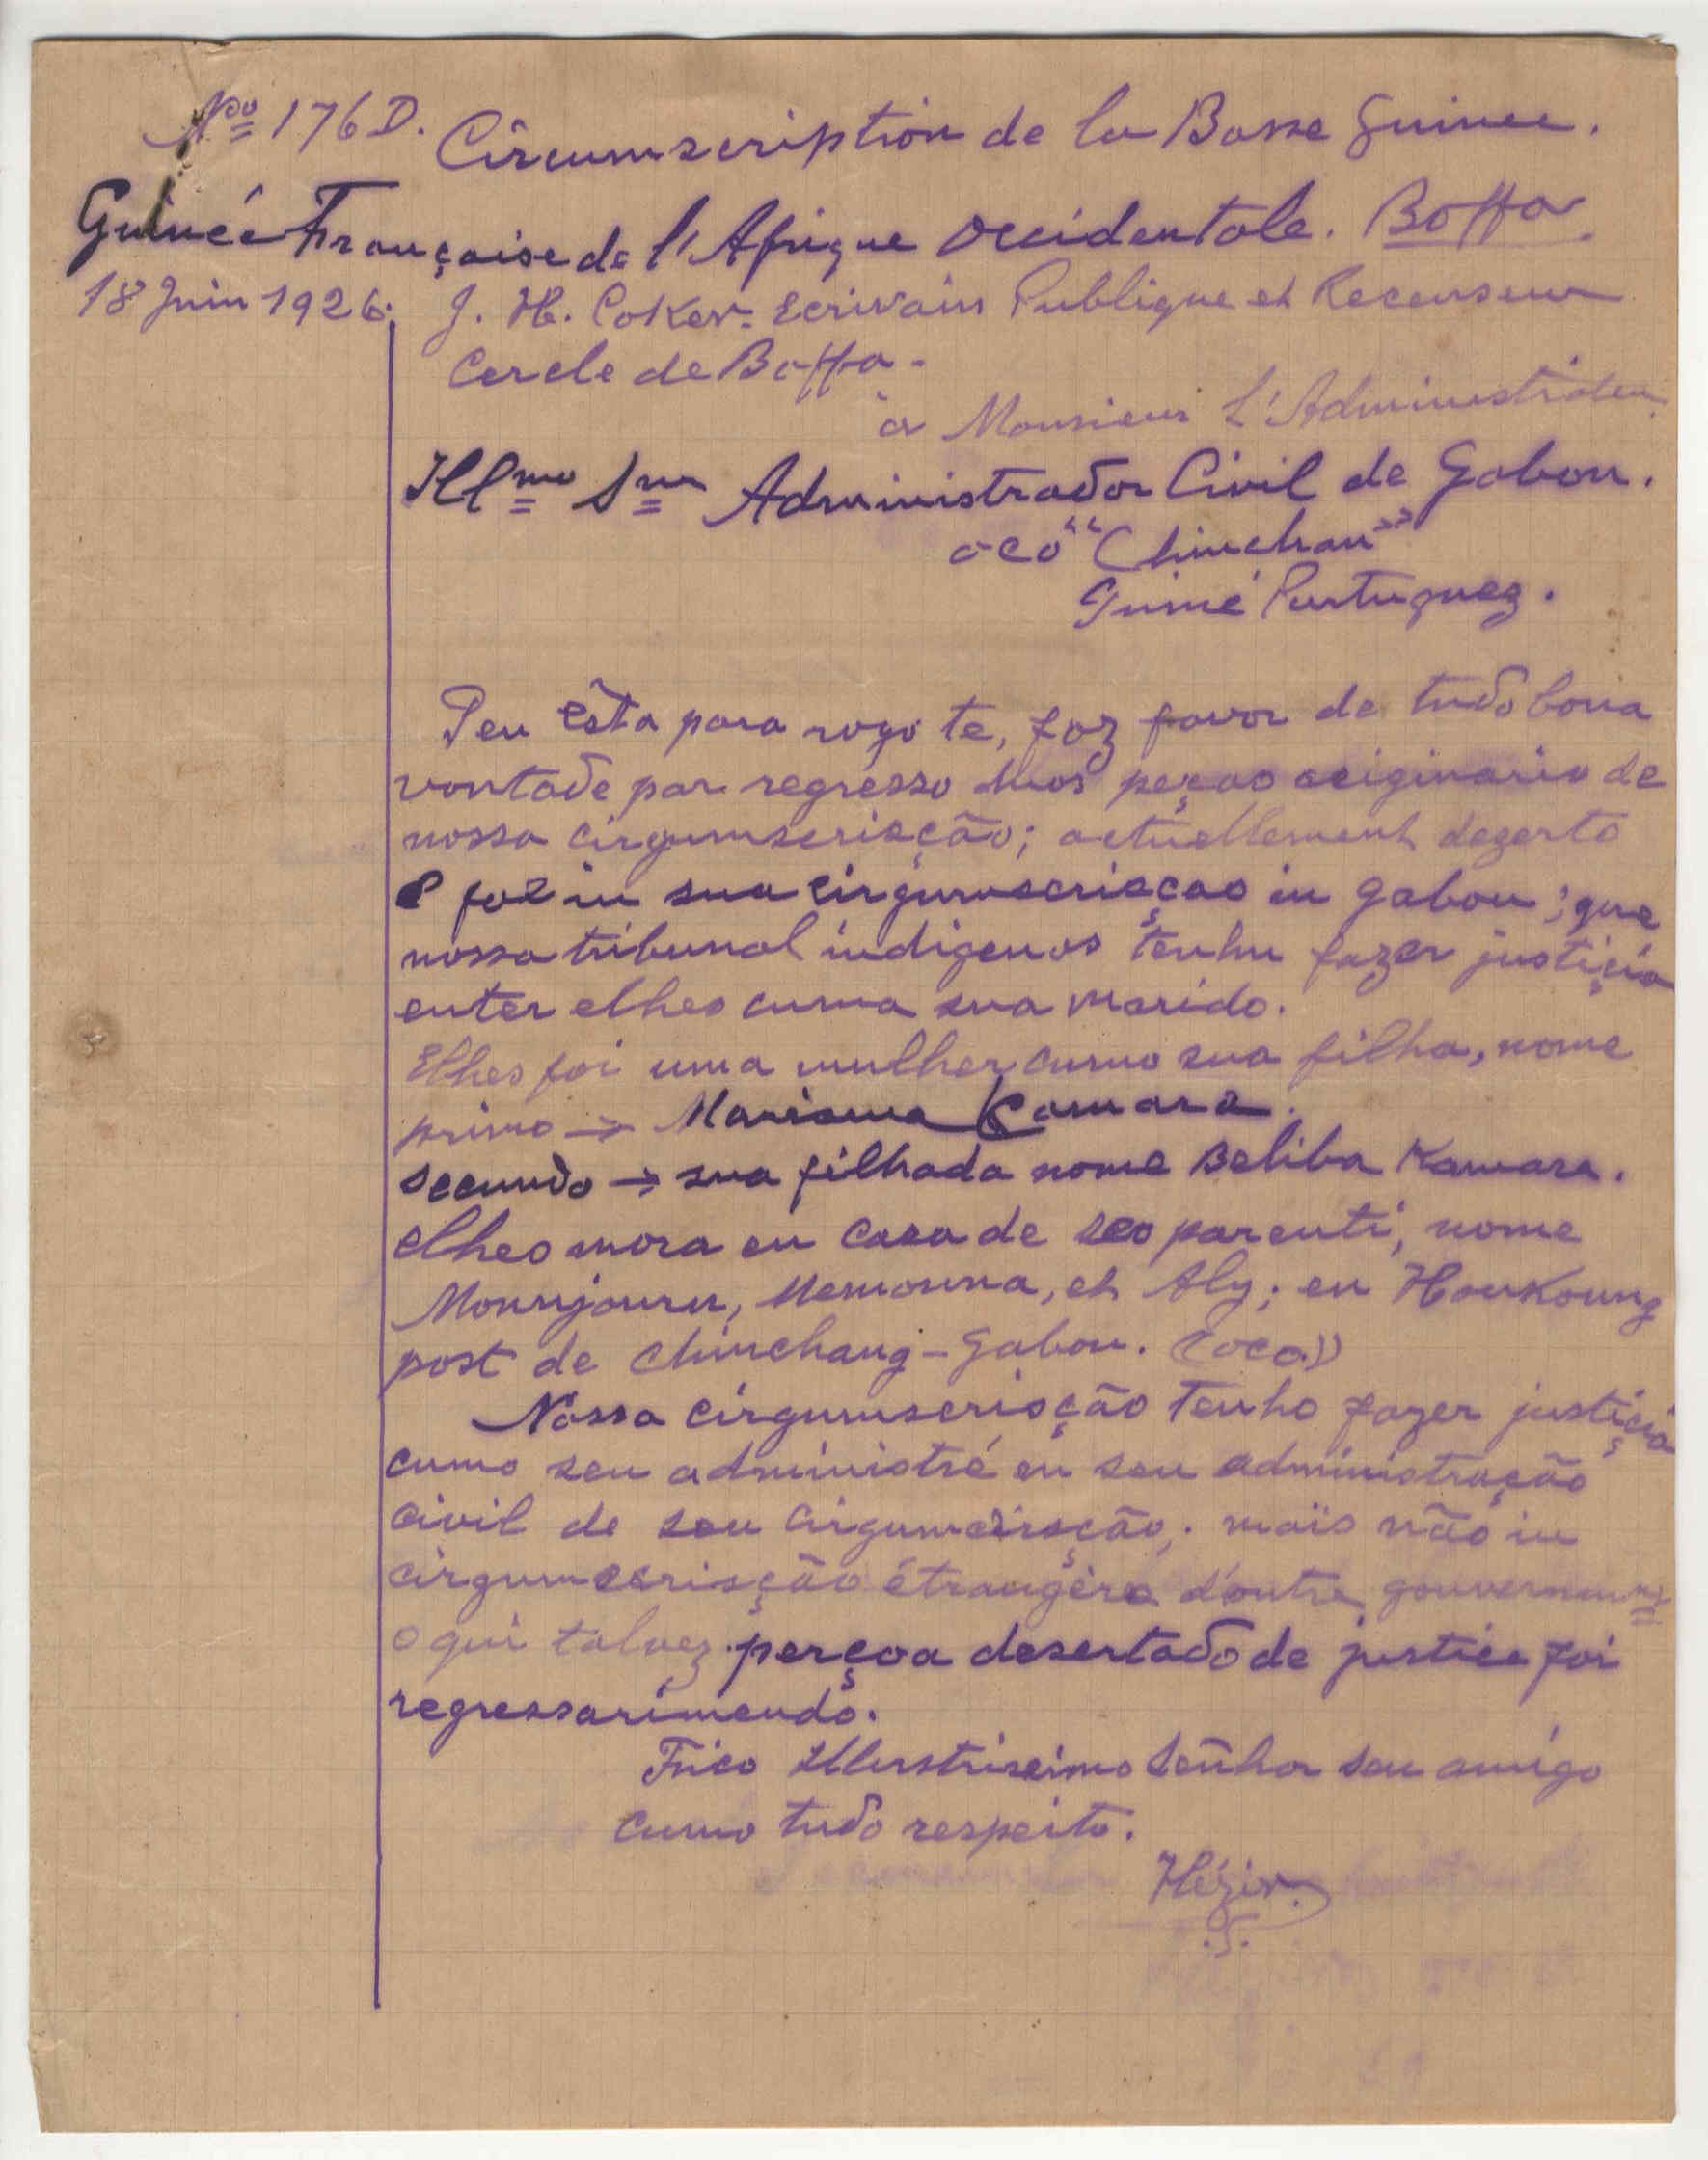 Nº 176 D. Circumscription de la Basse Guinee.
Guinée Française de l'Afrique Occidentale. Boffa.
18 Juin 1926. J. H. Coker. Ecrivain Publique et Recenseur
Cercle de Boffa.
à Monsieur L'Administrateur
Illmo Snr Administrador Civil de Gabou.
oco "Chinchan"
Guiné Portuguez.
esta para rogo te, faz favor de tudo bona
vontade par regresso peçao originario de
nossa cirgumscrisção; actuellement dezerto
e foi in sua cirgumscrisçao in Gabou; que
nossa tribunal indigenos tenhu fazer justiçia
enter elhes cuma sua marido.
Elhes foi uma mulher cumo sua filha, nome
primo → Mariama Kamara.
secundo → sua filhada nome Beliba Kamara.
elhes mora en casa de seo parenti, nome
Mounjouru, Memouna, et Aly; en Houkoung
post de Chinchang-Gabou. (oco))
Nossa cirgumscrisção tenho fazer justiçia
cumo seu administré en seu administração
civil de seu cirgumcrisção; mais não in
cirgumscrisção étrangère d'outre
o qui talvez perçoa desertado de justice foi
regressarimendo.
Frico Illustrissimo Senhor seu amigo
cumo tudo respeito.